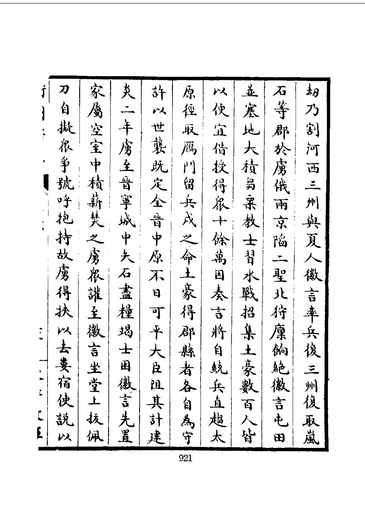 刼乃割河西三州與夏人徽言率兵復三州復取嵐
石等郡於虜俄兩京陷二聖北狩廩餉絶徽言屯田
並塞地大積芻粟教士習水戰招集土豪數百人皆
以便宜借授得衆十餘萬因奏言將自統兵直趨太
原徑取鴈門留兵戍之命土豪得郡縣者各自為守
許以世襲既定全晉中原不日可平大臣阻其計建
炎二年虜至晉寧城中矢石盡糧竭士困徽言先置
家屬空室中積薪焚之虜衆讙至徽言坐堂上拔佩
刀自擬衆爭號呼抱持故虜得挾以去婁宿使説以
921